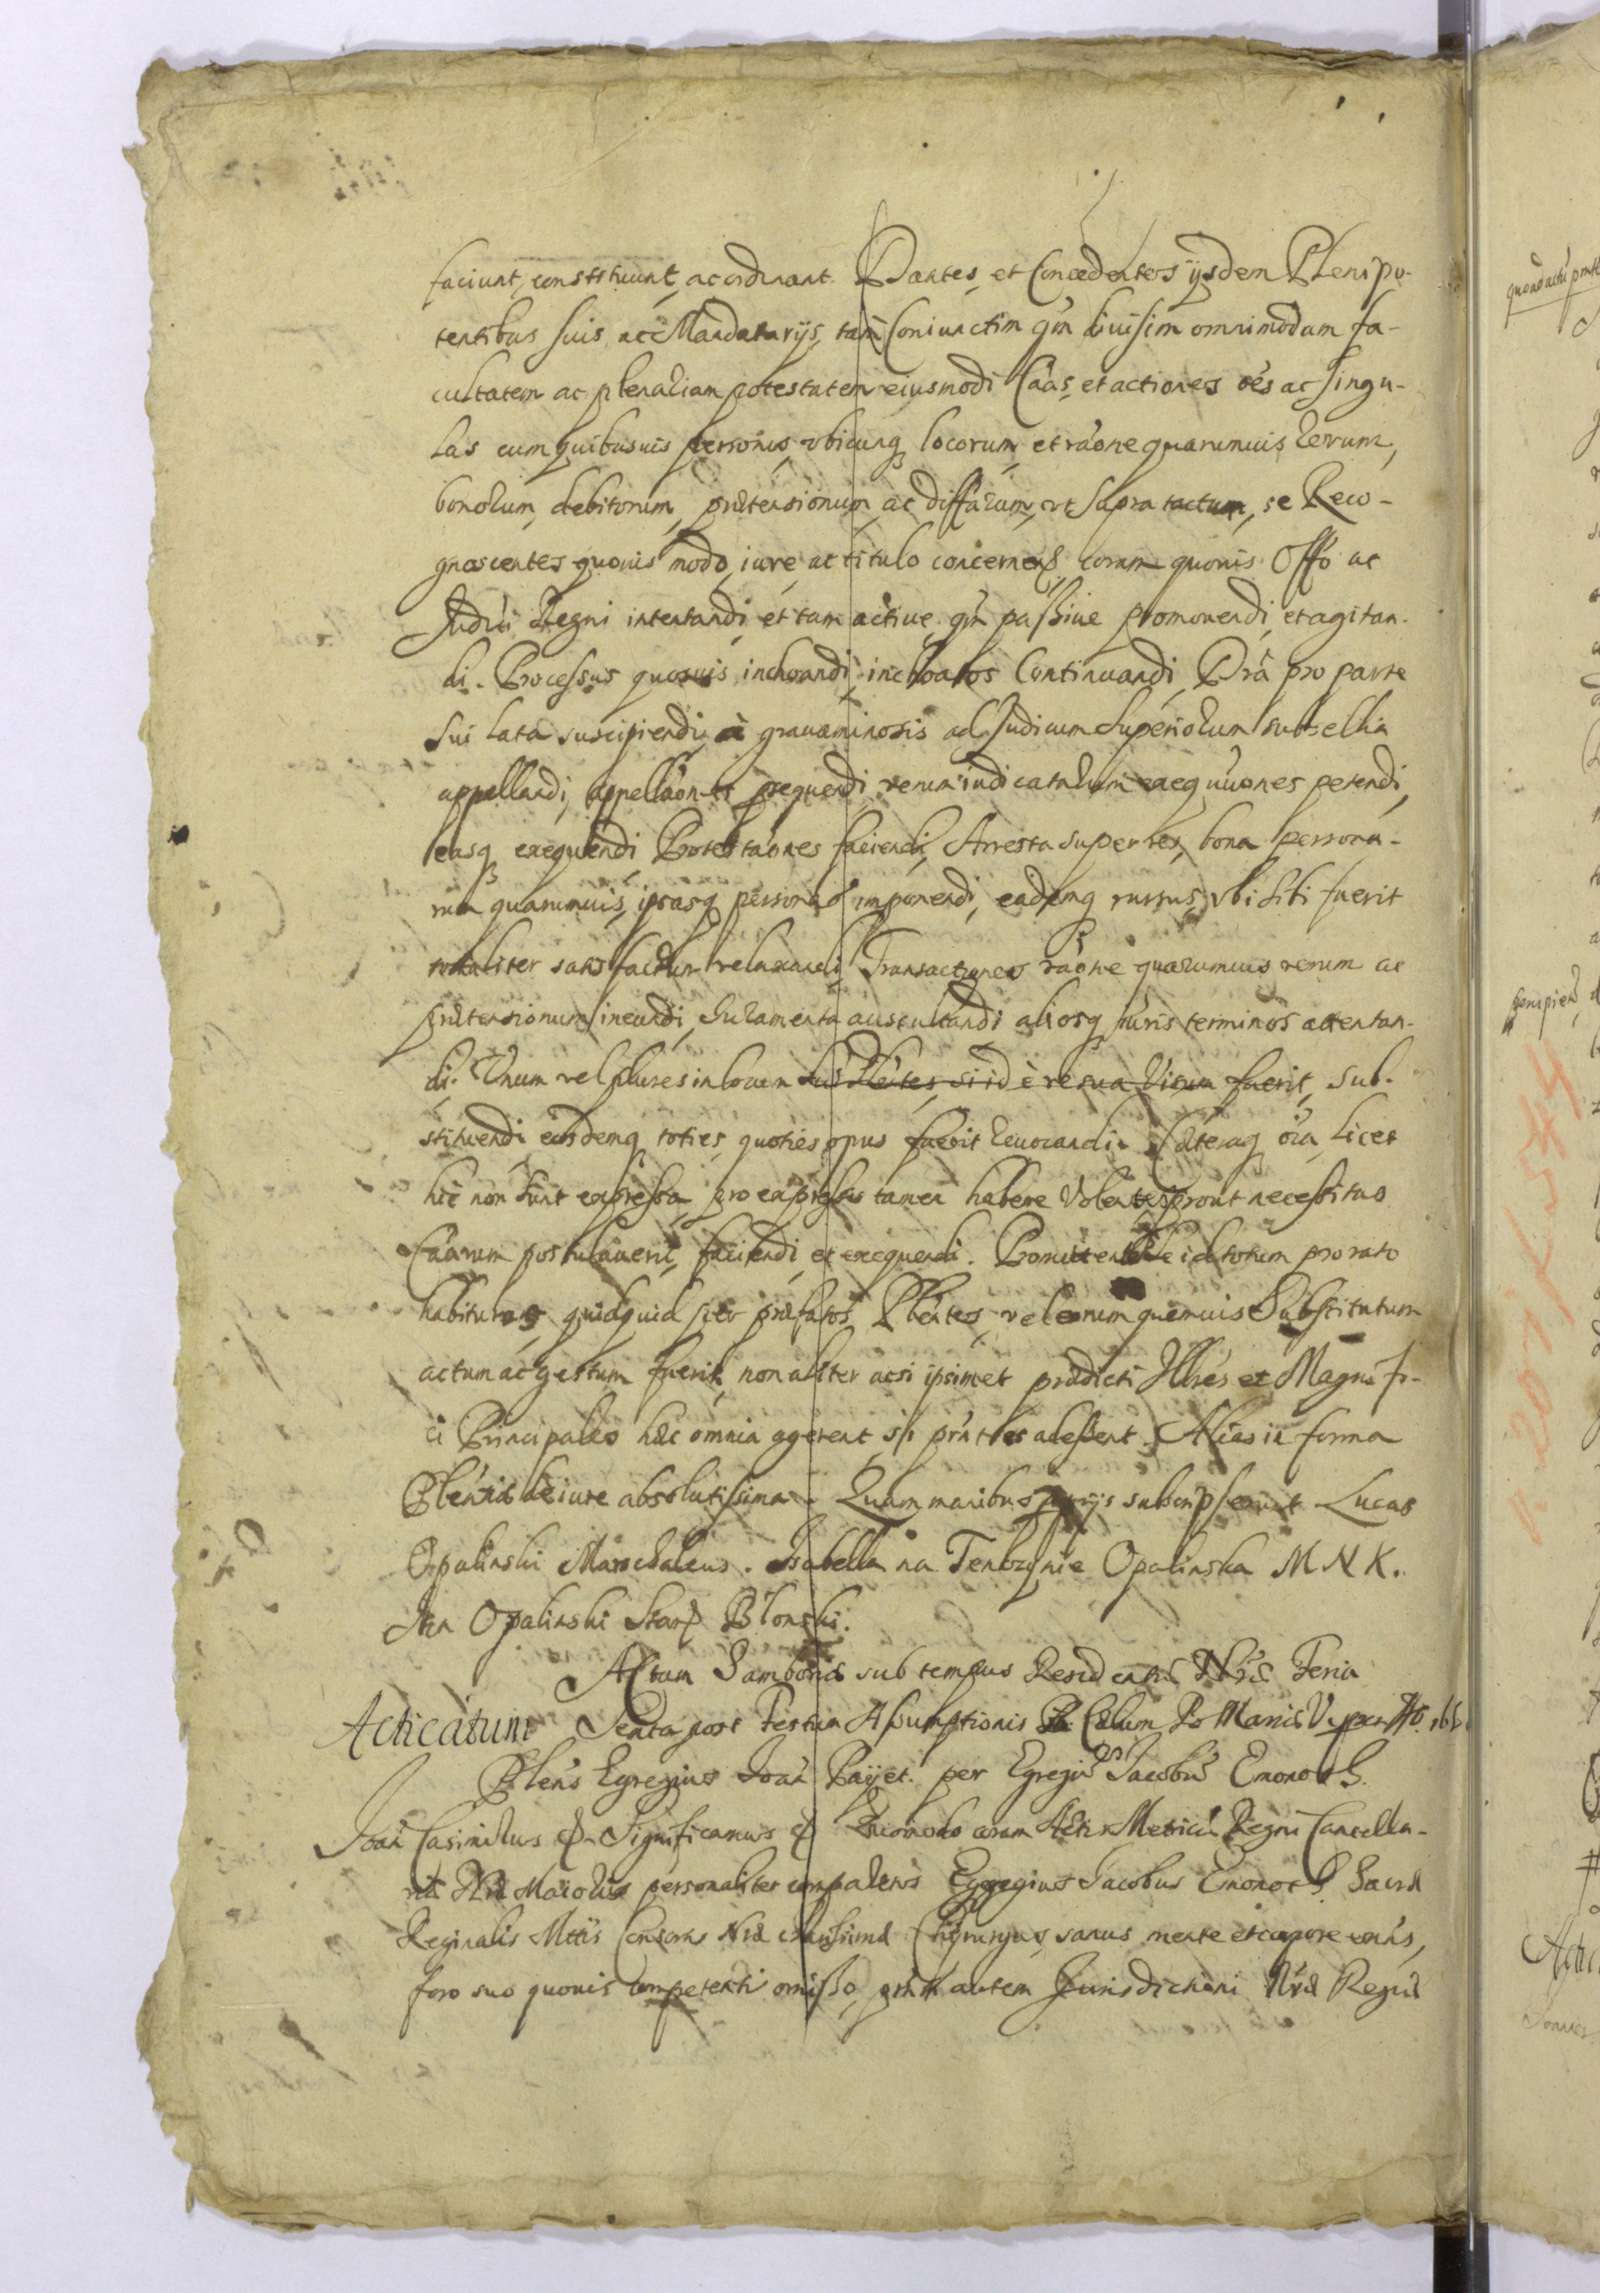 faciunt, constituunt, ac ordinant. Dantes, et Concedentes ijsdem Plenipo-
tentibus suis ac Mandatarijs, tam Coniunctim qm diuisim omnimodam fa-
cultatem ac plenariam potestatem eiusmodi Caas, et actiones oes ac singu-
las cum quibusuis personis, vbicunq locorum, et raone quarumuis rerum,
bonorum, debitorum, prætensionum, ac diffarum, vt supra tactum, se Reco-
gnoscentes quouis modo, iure, ac titulo concernen, coram quouis Offo ac
Judici Regni intentandi, et tam actiue, qm passiue promouendi, et agitan-
di. Processus quosuis inchoandi, inchoatos Continuandi, Dra pro parte
sui lata suscipiendi, a grauaminosis ad Judicum Superiorum subsellia
appellandi, appellaones prosequendi, rerum iudicatarum exequuones petendi,
easq exequendi, Protestaones faciendi, Arresta super res, bona persona-
rum quarumuis, ipsasq personas imponendi, eademq rursus, vbi sibi fuerit
totaliter satisfactum relaxandi, Transactiones raone quarumuis rerum ac
prætensionum ineundi, Iuramenta auscultandi aliosq iuris terminos attentan-
di. Vnum vel plures in locum sui Plentes, si id è re sua visum fuerit, sub-
stituendi eosdemq toties, quoties opus fuerit reuocandi. Cæteraq oia, licet
hic non sunt expressa, pro expressis tamen habere volentes prout necessitas
Caarum postulauerit, faciendi, et exequendi. Promittentes id totum pro rato
habituros, quidquid per præfatos Plentes, vel eorum quemuis Substitutum
actum ac gestum fuerit, non aliter acsi ipsimet prædicti Illres et Magnifi-
ci Principales hæc omnia agerent, si prntes adessent. Alias in forma
Plentiæ de iure absolutissima. Quam manibus suis subscripserunt. Lucas
Opalinski Marschalcus. Isabella na Tenczynie Opalinska M N K.
Jan Opalinski Star Błonski.
Actum Samboriæ sub tempus Residentiæ Nræ Feria
Acticatum Sexta post Festum Assumptionis in Cælum Mariæ V.
Plens Egregius Joan Payet per Egregiu Jacobu Emonot S.
Joan Casimirus Significamus Quomodo coram Actis Metrices Regni Cancella-
riæ Nræ Maioris personaliter comparens Egregius Jacobus Emonot S. Sacræ
Reginalis Mttis Consortis Nræ charissimæ Chirurgus, sanus mente et corpore exns,
foro suo quouis competenti omisso, prnti autem Jurisdictioni Nræ Regiæ